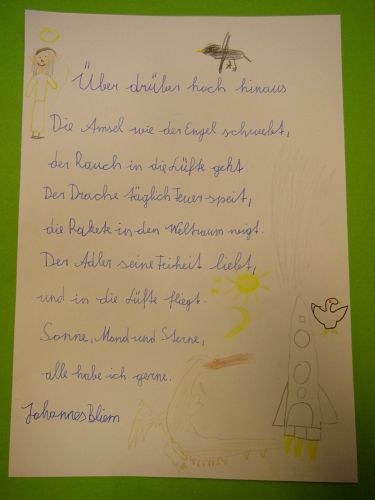 Über drüber hoch hinaus
Die Amsel wie der Engel schwebt,
der Rauch in die Lüfte geht.
Der Drache täglich Feuer speit,
die Rakete in den Weltraum neigt.
Der Adler seine Freiheit liebt,
und in die Lüfte fliegt.
Sonne, Mond und Sterne,
alle habe ich gerne.
Johannes Bliem